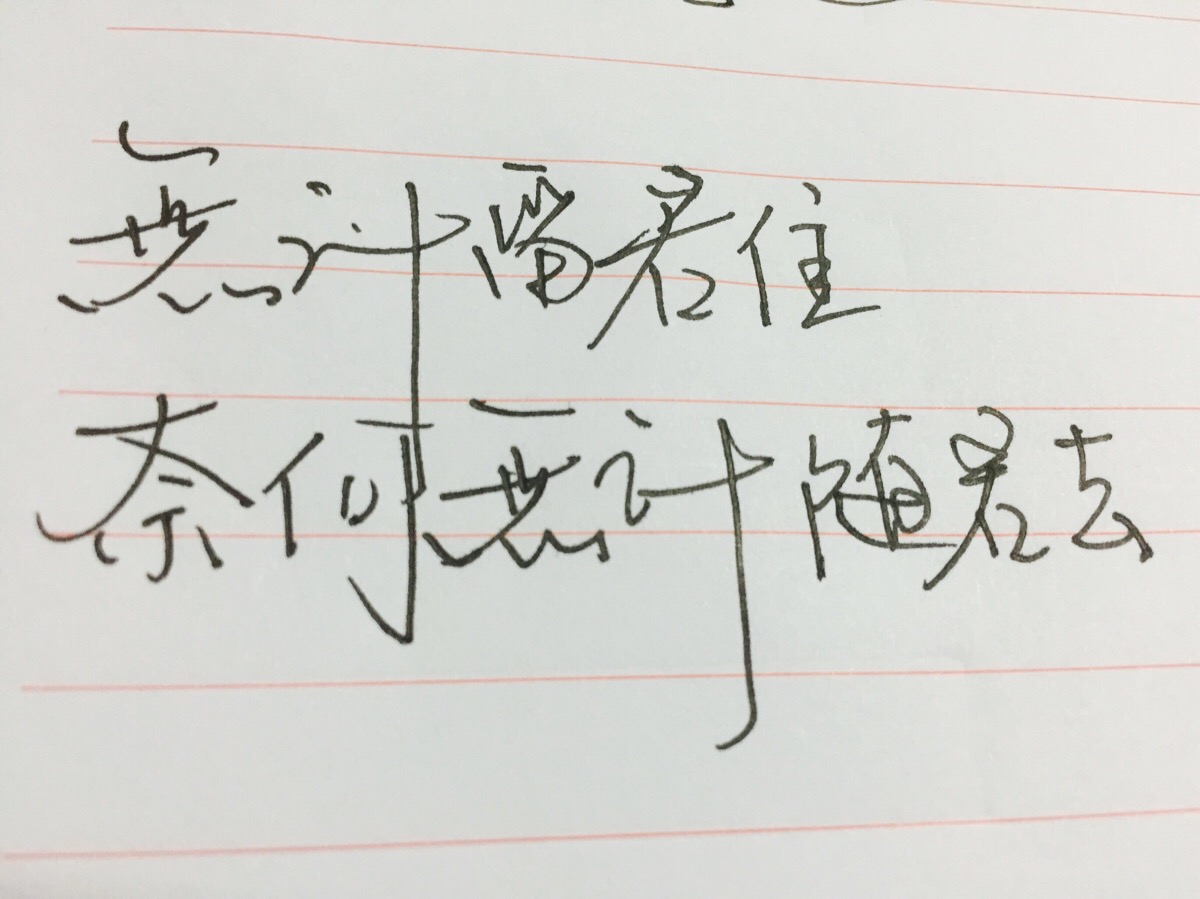 無计留君住
奈何無计随君去